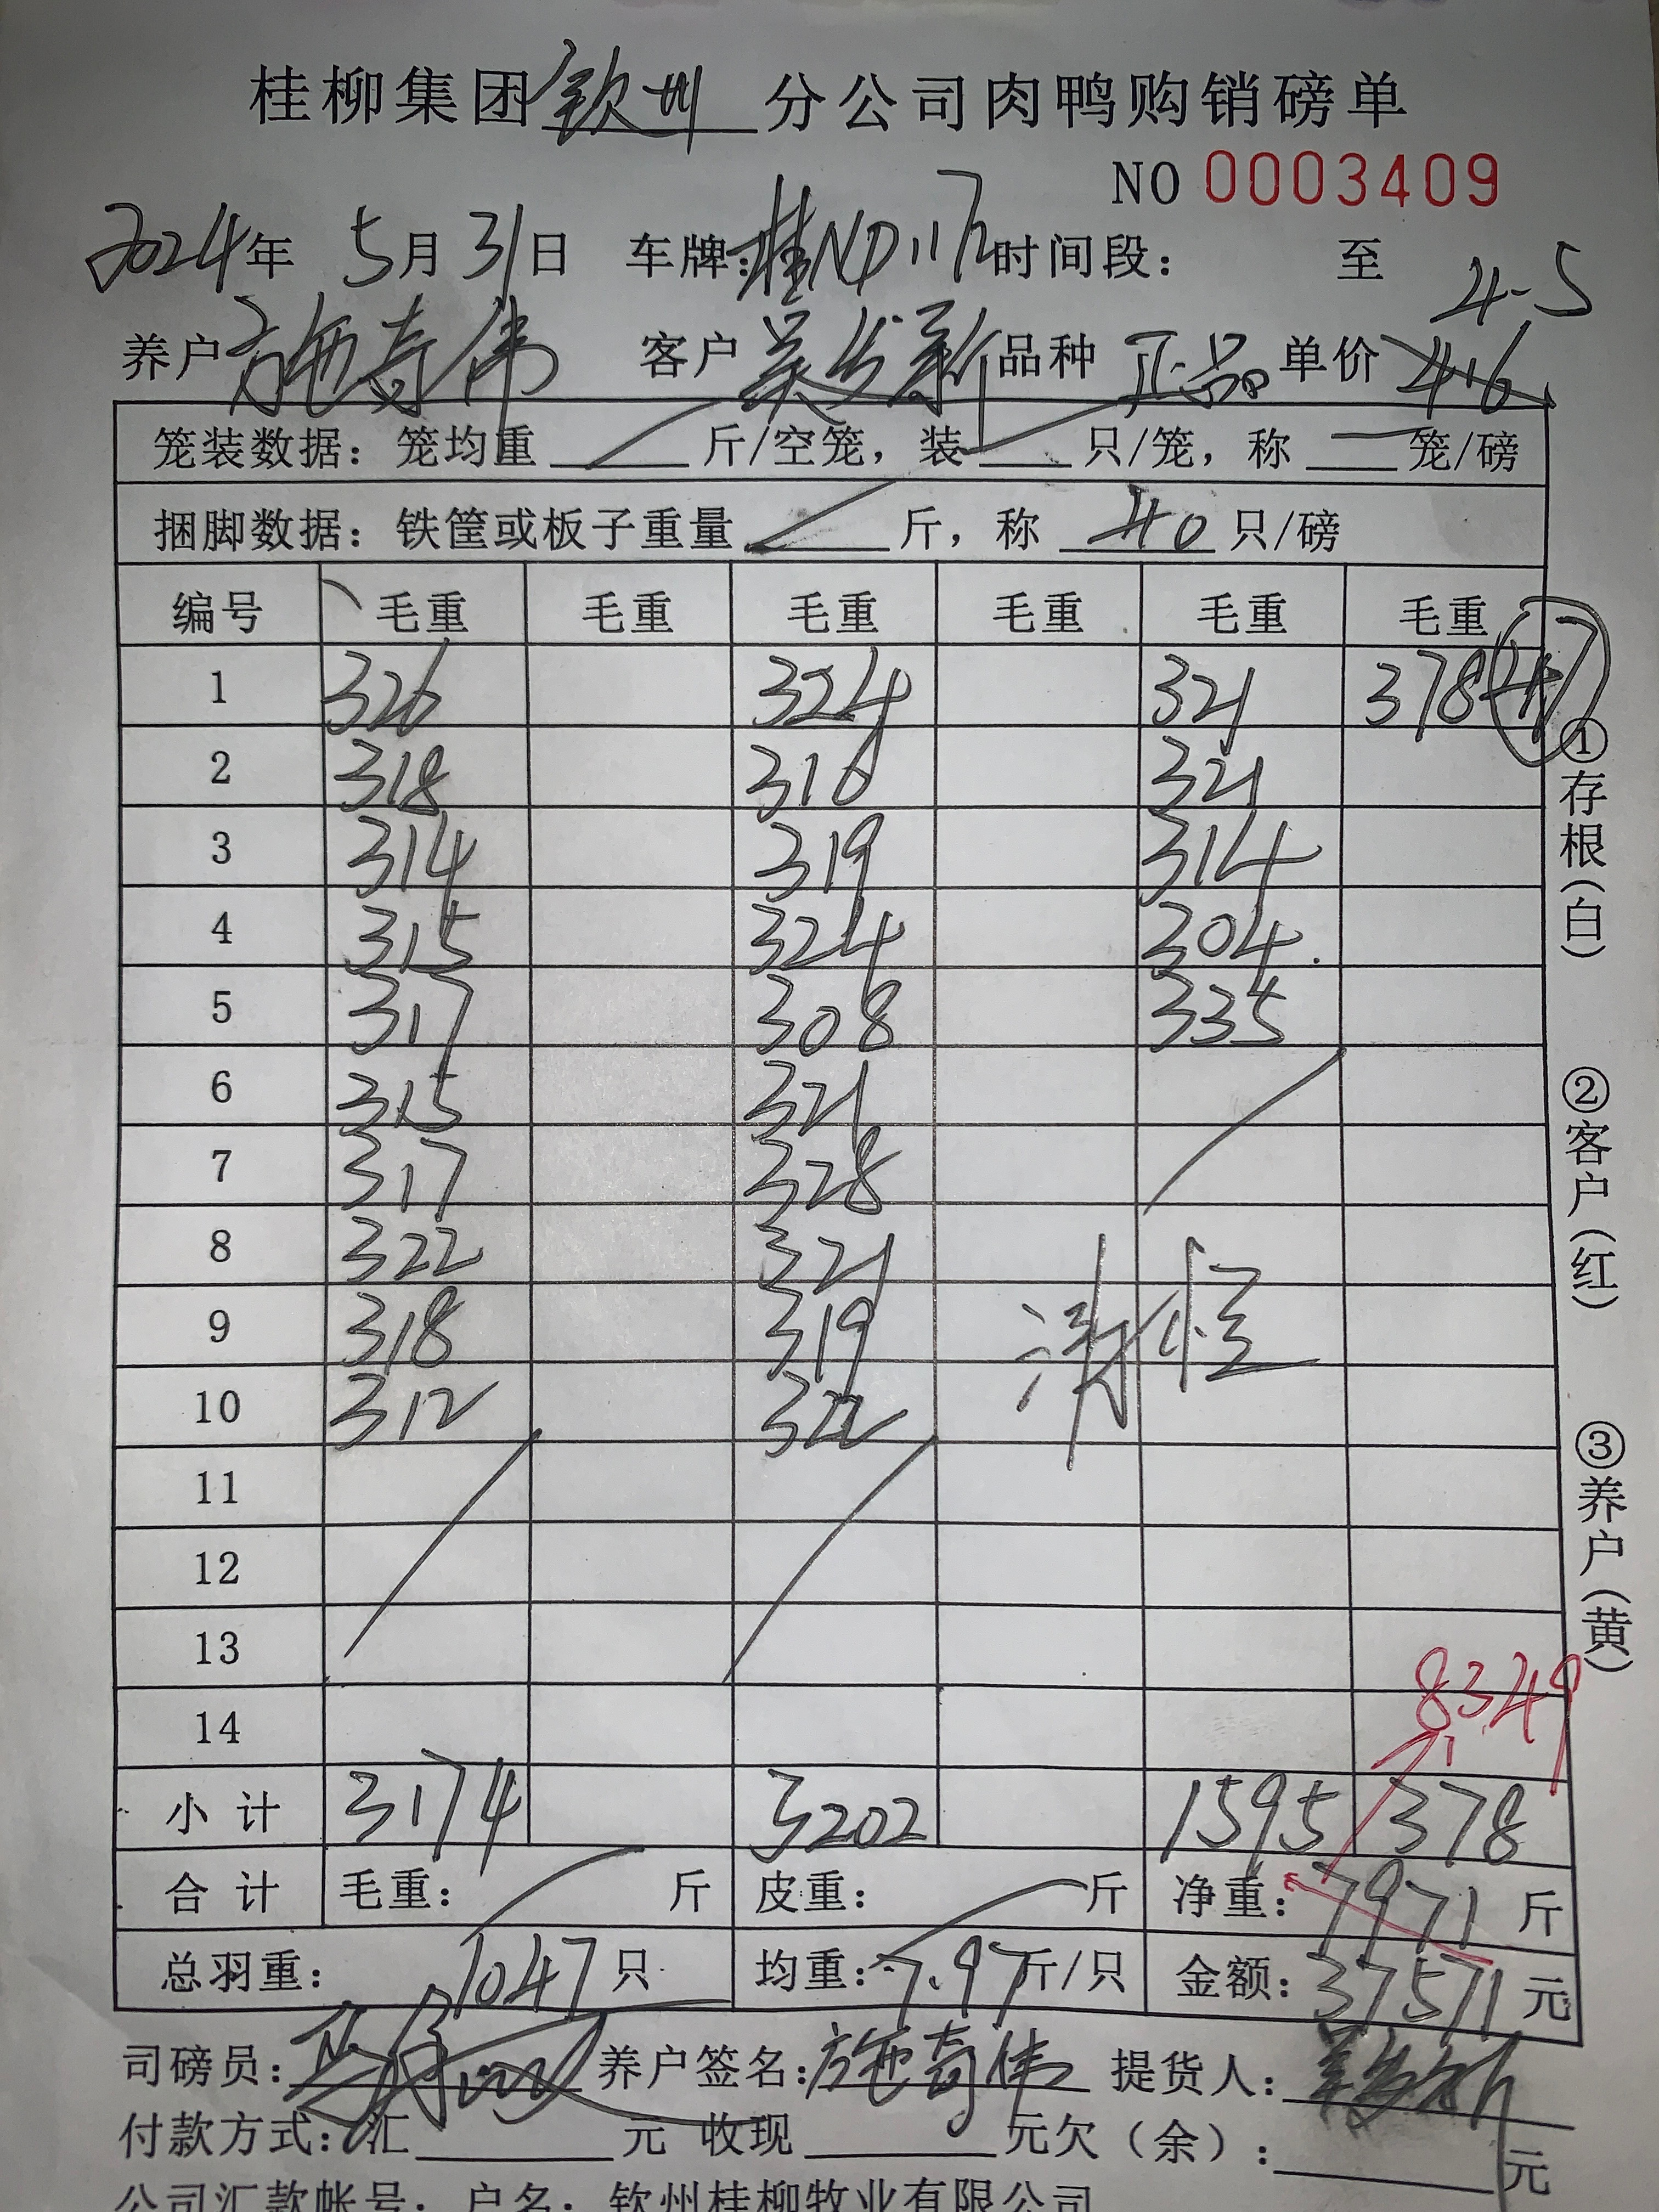 桂柳集团钦州分公司肉鸭购销磅单
NO 0003409
2024年 5月31日 车牌:桂ND1172 时间段: 至
4.5
养户 施寿伟 客户 吴发新 品种 正品 单价 4.6
笼装数据: 笼均重 斤/空笼, 装 只/笼, 称 笼/磅
捆脚数据: 铁筐或板子重量 斤, 称 40 只/磅
编号 毛重 毛重 毛重 毛重 毛重 毛重
1 326 324 321 378 47
2 318 316 321
3 314 319 314
4 315 324 304
5 317 308 335
6 315 321
7 317 328
8 322 321
9 318 319
10 312 322
11
12
13
14
8349
小计 3174 3202 1595 378
合计 毛重: 斤 皮重: 斤 净重: 7971 斤
总羽重: 1047只 均重: 7.97斤/只 金额: 37571元
司磅员: 养户签名: 施寿伟 提货人: 吴发新
付款方式: 汇 元 收现 元欠(余): 元
公司汇款帐号: 户名: 钦州桂柳牧业有限公司
①存根(白)
②客户(红)
③养户(黄)